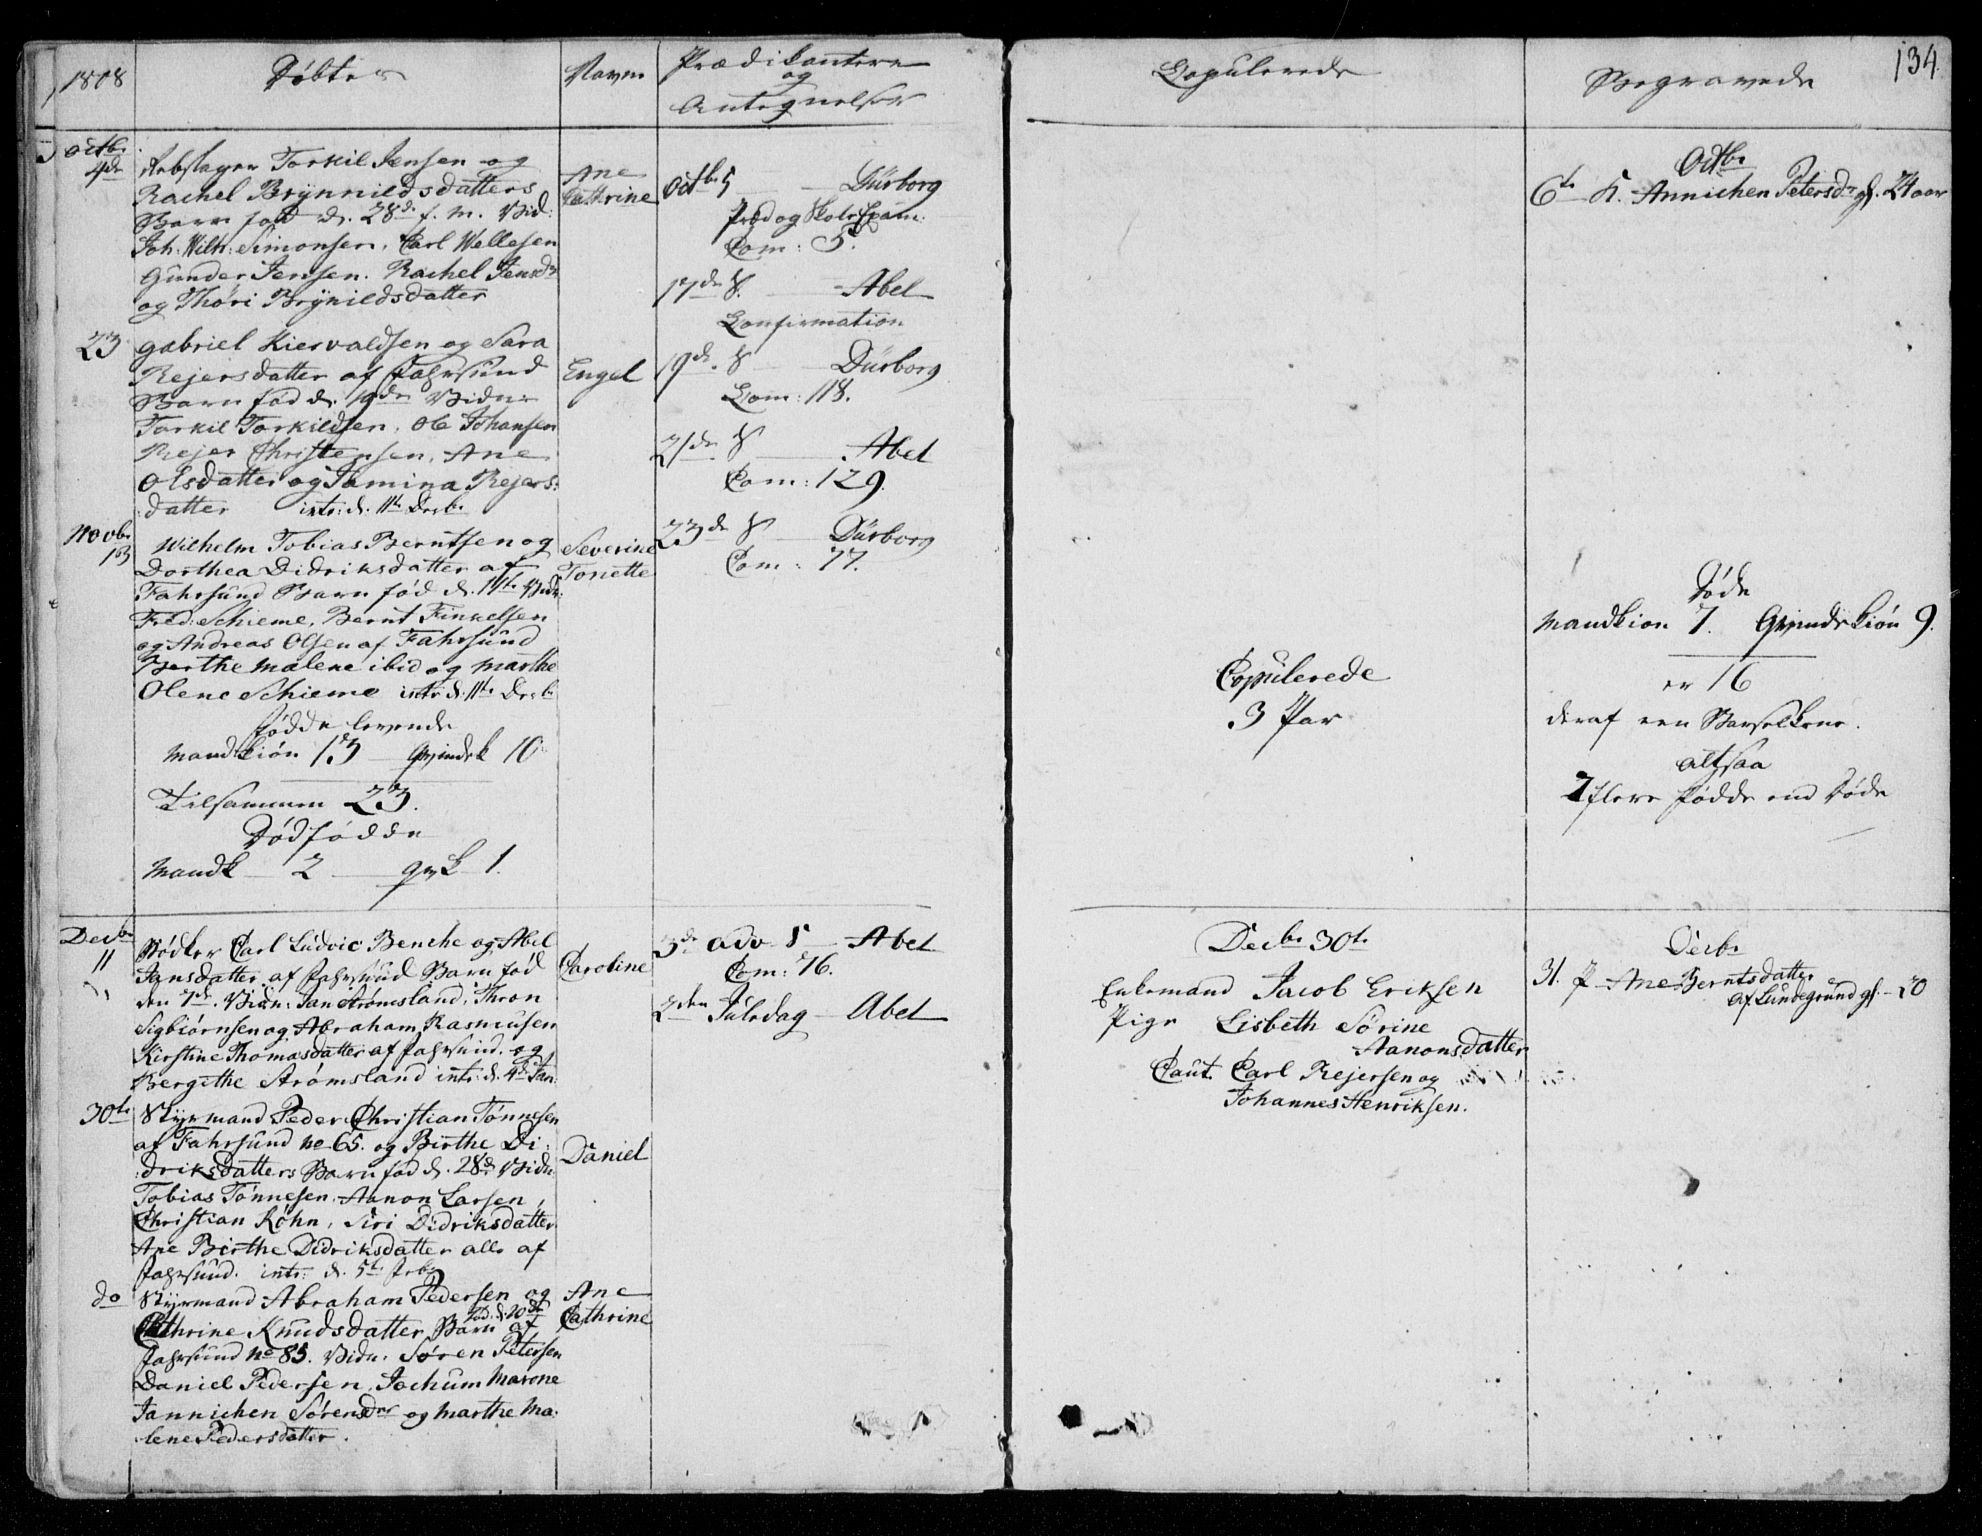 1808
Døbte
Navne
Prædikantere
og
Antegnelser
Octbr
4de
Rebslager Torkil Jensen og
Rachel Brynnildsdatters
Barn fød d. 28de f. m. Vid:
Joh. Wilh: Simonsen, Carl Wellesen
Gunder Jensen. Rachel Jensdr
og Thóri Brynildsdatter
Ane
Cathrine
23
Gabriel Kiervaldsen og Sara
Rejersdatter af Fahrsund
Barn fød d. 19de Vidne
Torkil Torkildsen, Ole Johansen
Rejer Christensen, Ane
Olsdatter og Jamina Rejers:
datter intr: d. 11te Decbr
Engel
Novbr
13
Wilhelm Tobias Berntsen og
Dorthea Didriksdatter af
Fahrsund Barn fød d. 11te Vidn:
Fred: Schieme, Bernt Finkelsen
og Andreas Olsen af Fahrsund
Berthe Malene ibid og Marthe
Olene Schieme intr: d. 11te Decb
Severine
Tonette
Fødde levende
Mandkión 13 Qvindek 10
Tilsammen 23.
Dødfødde
Mandk 2 qvk 1.
Octbr 5 Dürborg
Præd og Skole Exam:
Com: 5.
17de S. Abel
Confirmation
19de S Dürborg
Com: 118.
21de S Abel
Com: 129.
23de S Dürborg
Com: 77.
Decbr
11
Bødker Carl Ludvic Benche og Abel
Jansdatter af Fahrsund Barn fød
den 7de. Vidn: Jan Strømsland, Thron
Sigbiørnsen og Abraham Rasmusen
Kirstine Thomasdatter af Fahrsund og
Bergithe Strømsland intr: d. 4de Jan:
Caroline
30te
Styrmand Peder Christian Tønnesen
af Fahrsund No 65. og Birthe Di:
:driksdatters Barn fød d. 28de Vidn
Tobias Tønnesen, Aanon Larsen,
Christian Røhn, Siri Didriksdatter
Ane Birthe Didriksdatter alle af
Fahrsund. intr: d. 5te Febr
Daniel
do
Styrmand Abraham Pedersen og
Cathrine Knudsdatter Barn fød. d. 20de af
Fahrsund No 85. Vidn. Søren Petersen
Daniel Pedersen, Jochum Marone
Jannichen Sørensdr og Marthe Ma:
lene Pedersdatter.
Ane
Cathrine
3de Adv S Abel
Com: 76.
2den Juledag Abel
Copulerede
Copulerede
3 Par
Decbr 30te
Enkemand Jacob Eriksen
Pige Lisbeth Sørine
Aanonsdatter
Caut. Carl Rejersen og
Johannes Henriksen.
Begravede
134
Octbr
6te K. Annichen Petersdr gl. 24 aar
Døde
Mandkion 7. Qvindekión 9.
er 16
deraf een Barselkone.
altsaa
7 flere fødde end døde
Decbr
31. P Ane Berntsdatter
af Lundegrund gl. 20